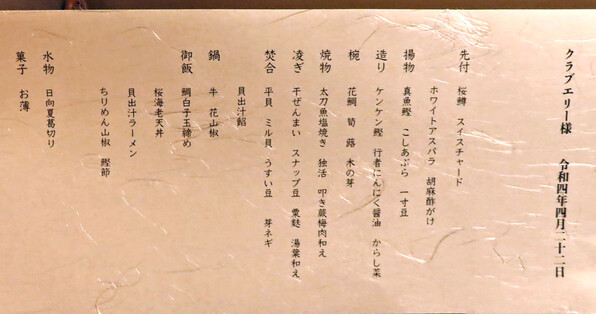 クラブエリー様　令和四年四月二十二日
先付　桜鱒　スイスチャード
ホワイトアスパラ　胡麻酢がけ
揚物　真魚鰹　こしあぶら　一寸豆
造り　ケンケン鰹　行者にんにく醤油　からし菜
椀　花鯛　筍　蕗　木の芽
焼物　太刀魚塩焼き　独活　叩き蕨梅肉和え
凌ぎ　干ぜんまい　スナップ豆　粟麩　湯葉和え
焚合　平貝　ミル貝　うすい豆　芽ネギ
貝出汁餡
鍋　牛　花山椒
御飯　鯛白子玉締め
桜海老天丼
貝出汁ラーメン
ちりめん山椒　鰹節
水物　日向夏葛切り
菓子　お薄